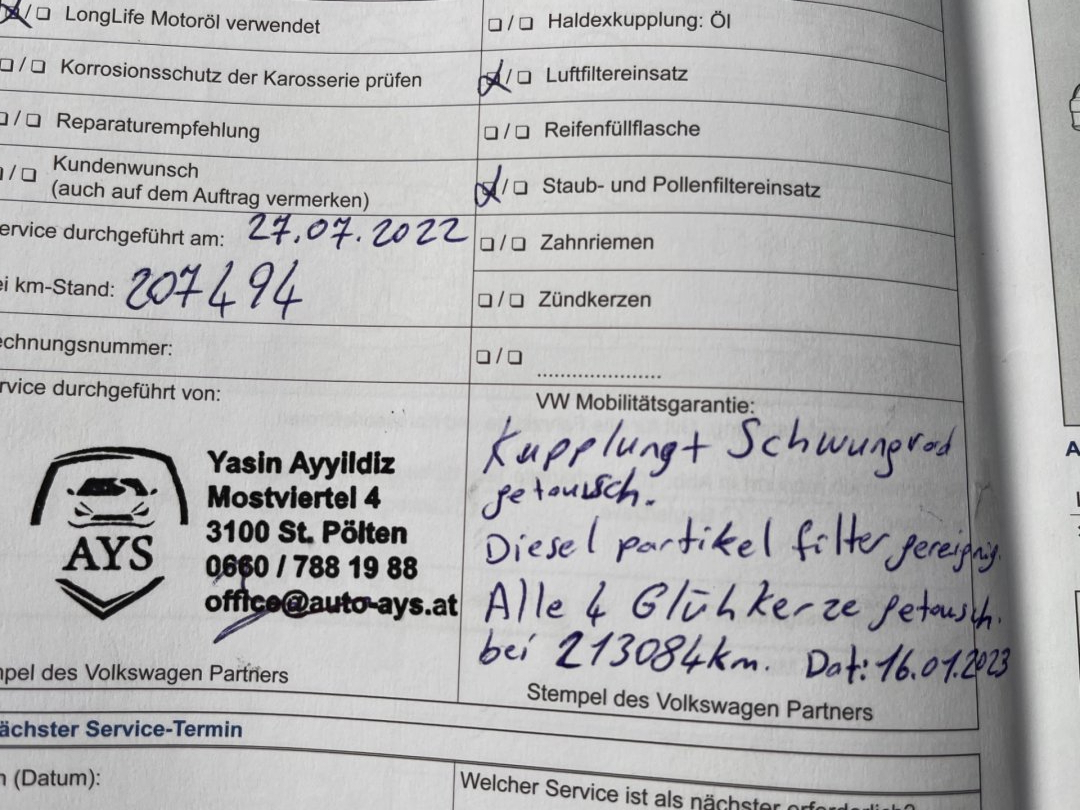 LongLife Motoröl verwendet
Korrosionsschutz der Karosserie prüfen
Reparaturempfehlung
Kundenwunsch
(auch auf dem Auftrag vermerken)
ervice durchgeführt am: 27.07.2022
ei km-Stand: 207494
echnungsnummer:
rvice durchgeführt von:
AYS
Yasin Ayyildiz
Mostviertel 4
3100 St. Pölten
0660 / 788 19 88
office@auto-ays.at
mpel des Volkswagen Partners
Haldexkupplung: Öl
Luftfiltereinsatz
Reifenfüllflasche
Staub- und Pollenfiltereinsatz
Zahnriemen
Zündkerzen
VW Mobilitätsgarantie:
Kupplung + Schwungrad
getausch.
Diesel partikel filter gereignig.
Alle 4 Glühkerze getausch.
bei 213084km. Dat: 16.01.2023
Stempel des Volkswagen Partners
ächster Service-Termin
n (Datum):
Welcher Service ist als nächster erforderlich?